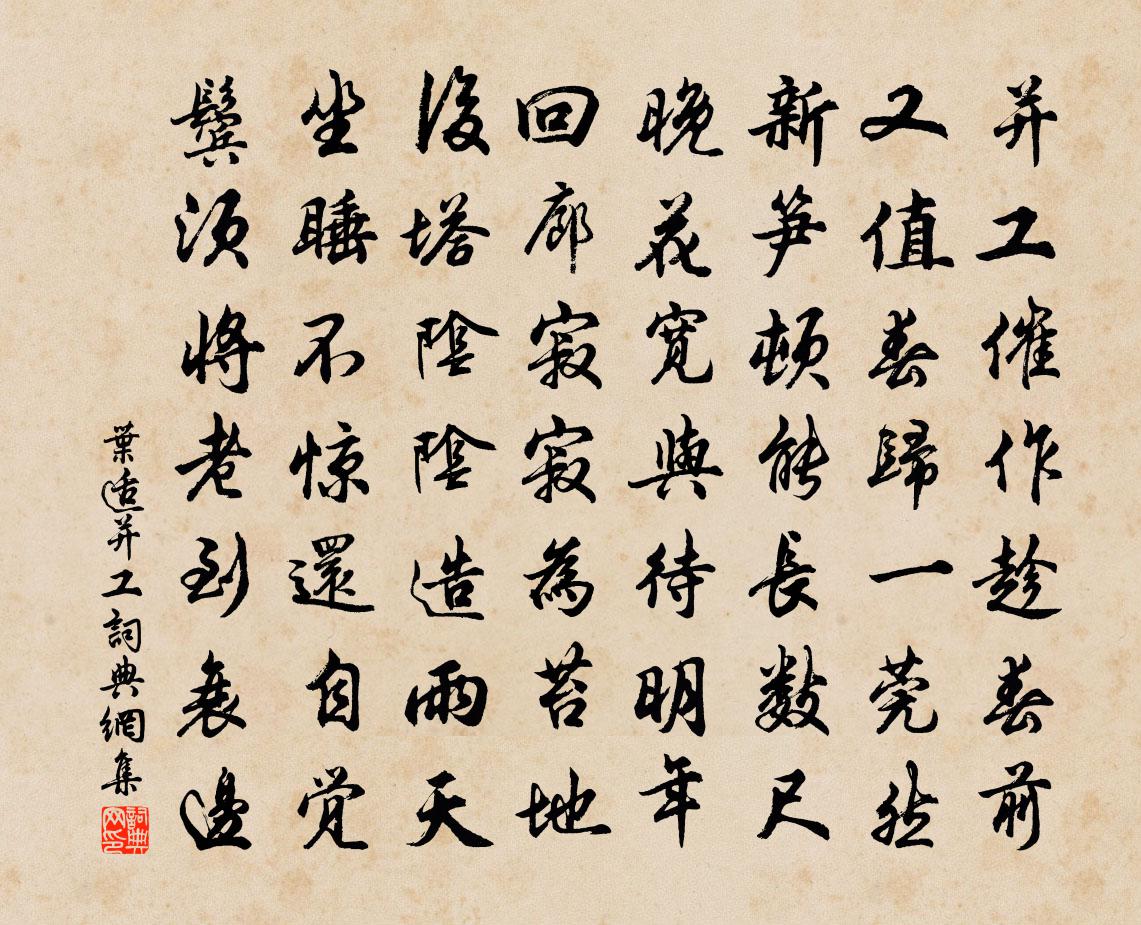 并工催作趁春前
又值春歸一莞然
新笋頓能長數尺
晚花寬與待明年
回廊寂寂為苔地
後塔陰陰造雨天
坐睡不惊還自觉
鬓須將老到衰邊
葉适并工詞典網集
詞典网印